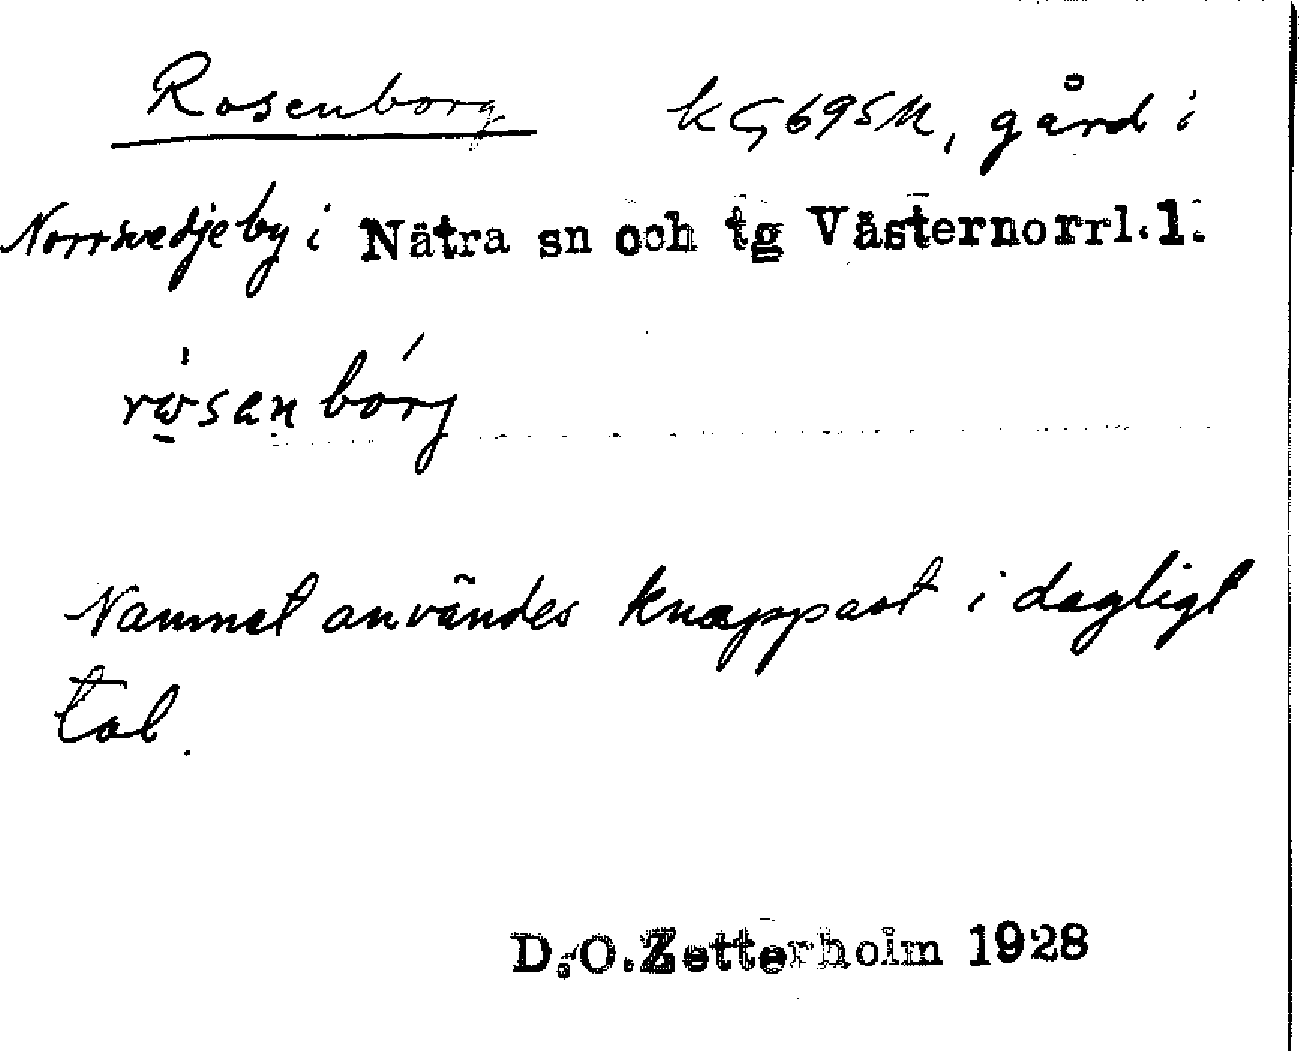 Rosenborg kG695M, gård i
Norrsvedjeby i Nätra sn och tg Västernorrl.l.
rosanbórg
Namnet användes knappast i dagligt
tal.
D.O.Zetterholm 1928